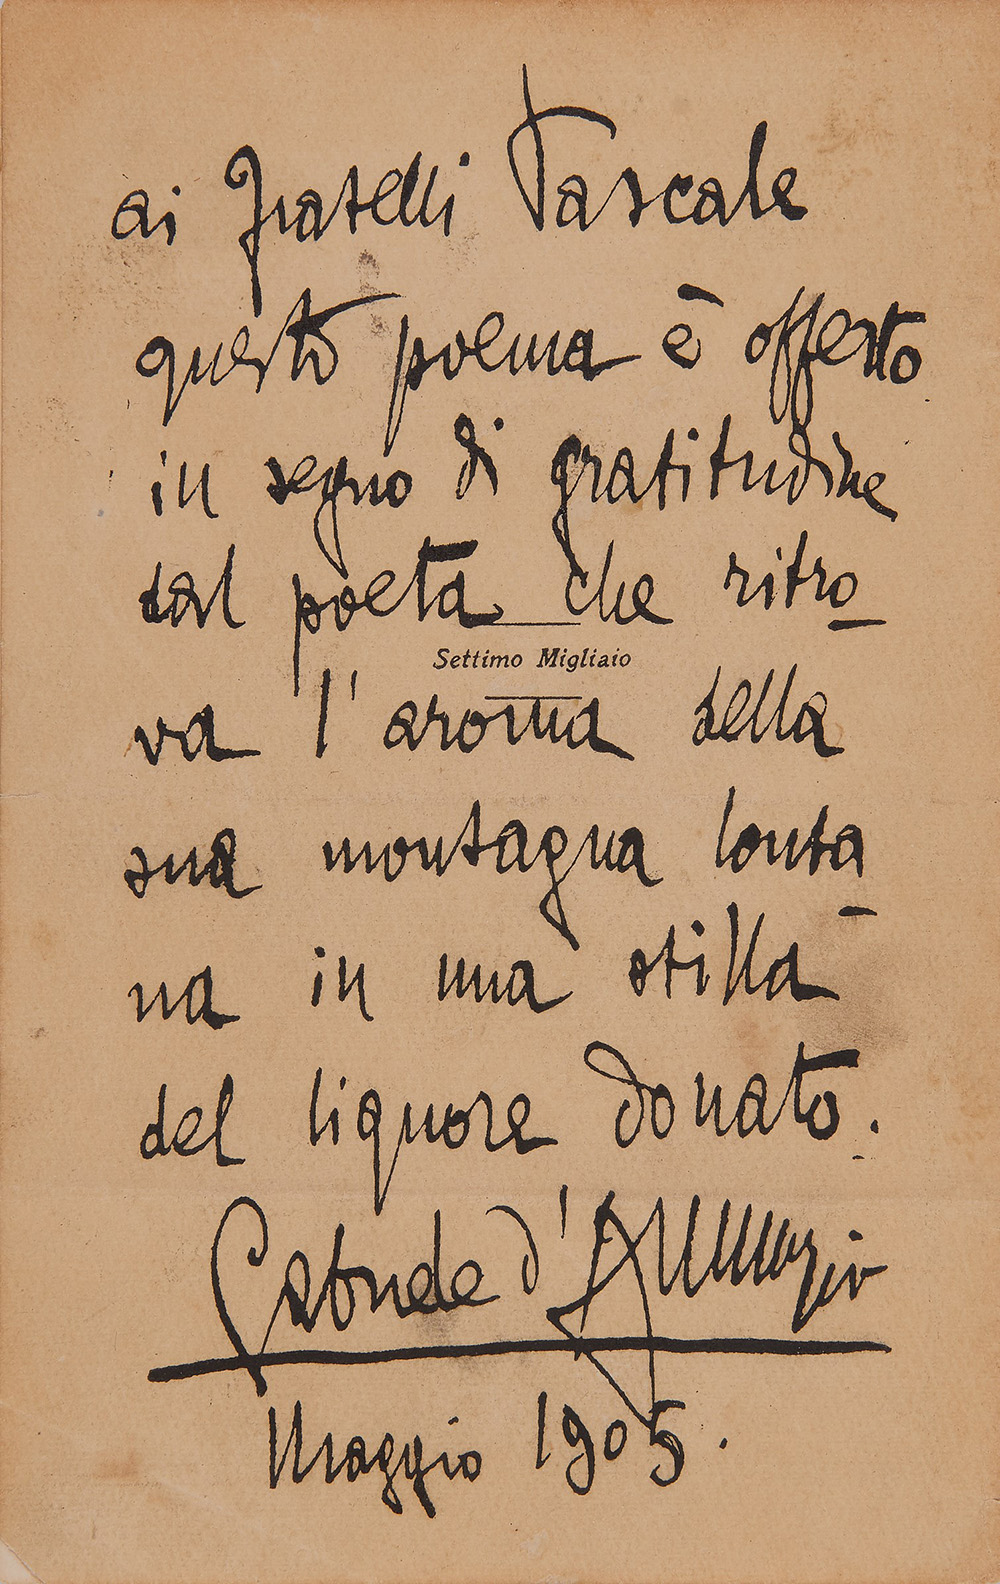 ai Fratelli Pascale
questo poema è offerto
in segno di gratitudine
dal poeta che ritro
Settimo Migliaio
va l'aroma della
sua montagna lonta
na in una stilla
del liquore donato.
Gabriele d'Annunzio
Maggio 1905.